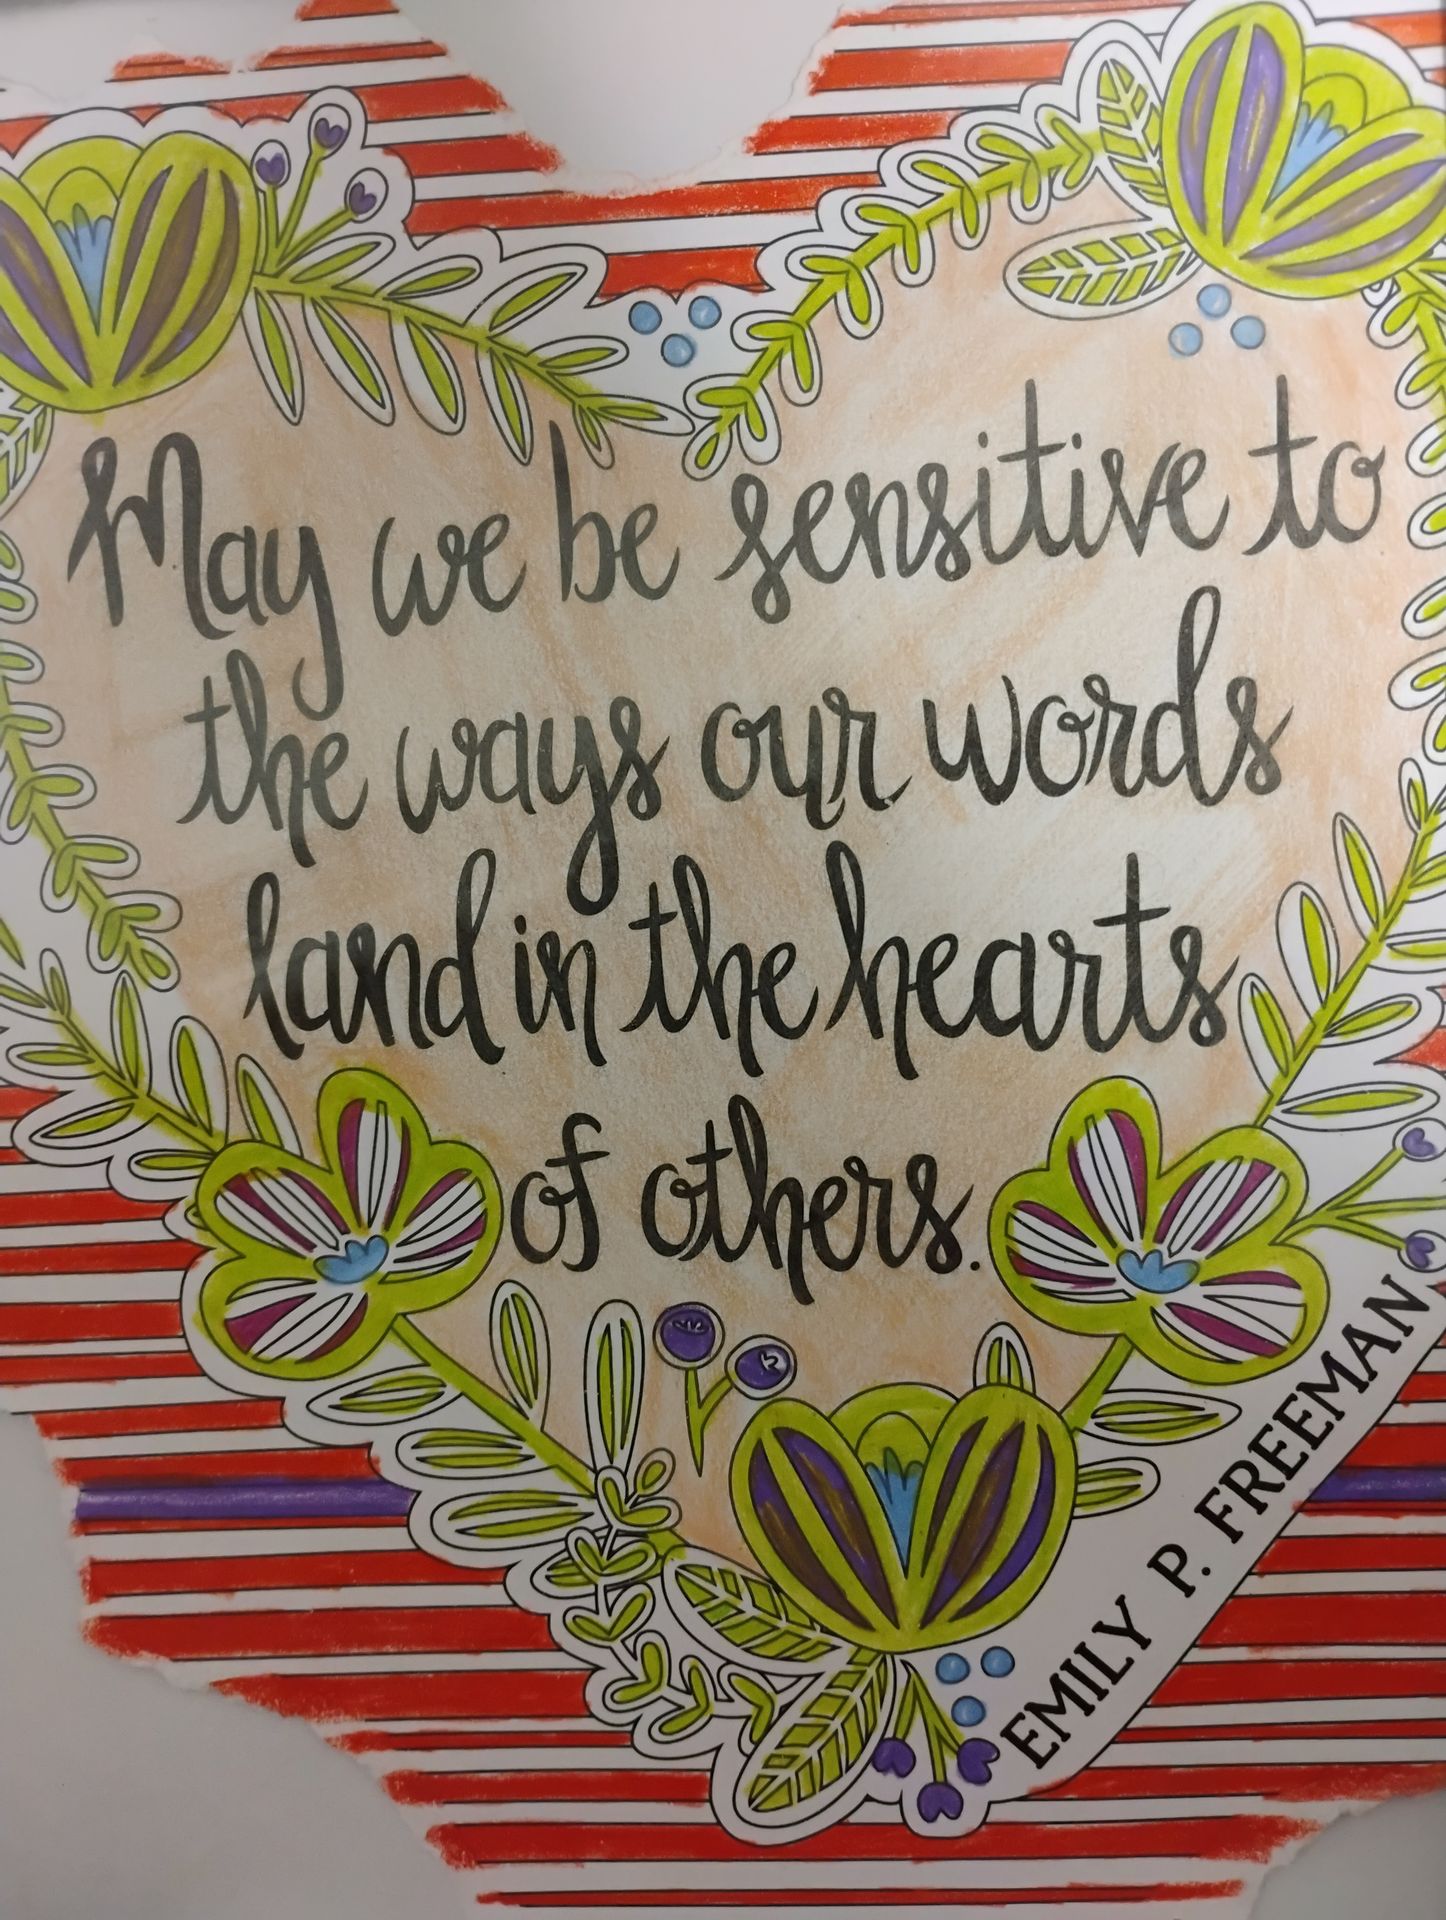 May we be sensitive to
the ways our words
land in the hearts
of others.
EMILY P. FREEMAN